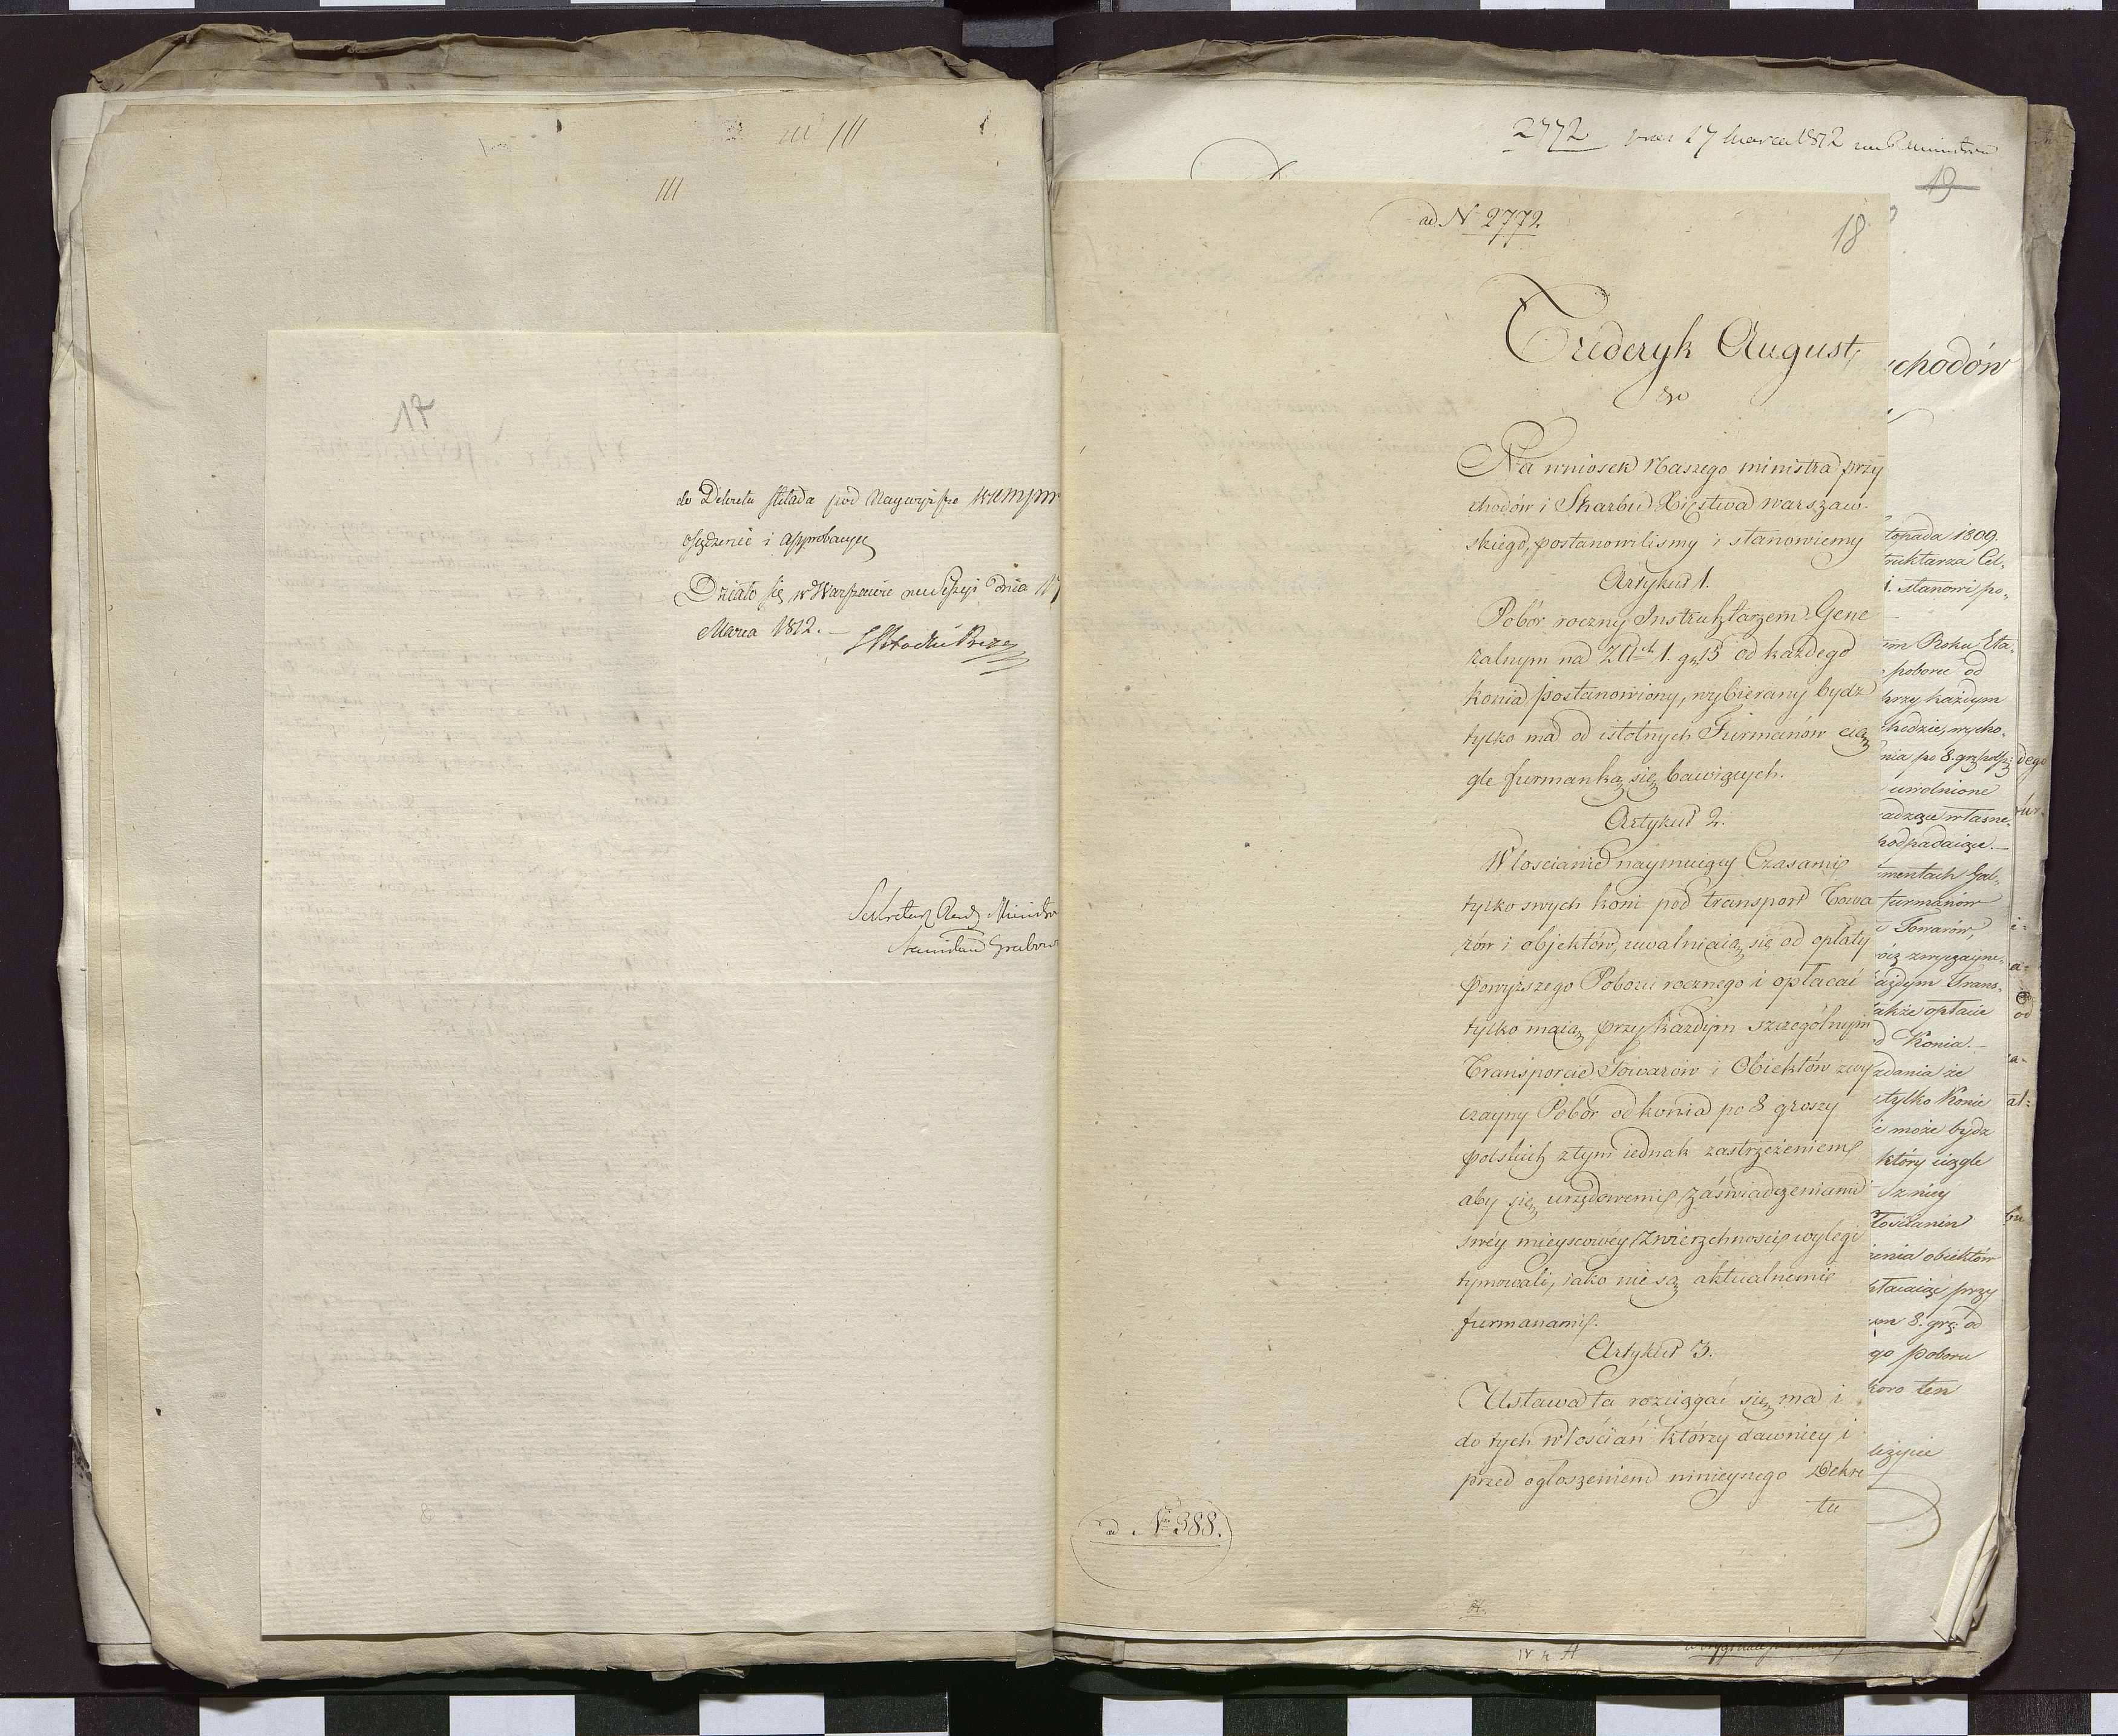 III III
III
17
do Dekretu składa pod Naywyższe
osądzenie i approbacyę
Działo się w Warszawie na Sessyi dnia 17
Marca 1812. —
Sekretarz Rady Ministrów
Stanisław Grabow
2772 17 Marca 1812
19
ad N 2772
18
Frederyk August,
&c
Na wniosek Naszego ministra przy
chodów i Skarbu Xięstwa warszaw-
skiego, postanowilismy i stanowiemy
Artykuł 1.
Pobór roczny Instruktarzem Gene
ralnym na Złt 1. gr 15 od każdego
konia postanowiony, wybierany bydz
tylko ma od istotnych Furmanów cią
gle furmanką się bawiących.
Artykuł 2.
Włoscianie naymuiący Czasami
tylko swych koni pod transport Towa
rów i objektów, uwalniaią się od opłaty
powyższego Poboru rocznego i opłacać
tylko maią przy każdym szczególnym
Transporcie Towarów i Obiektów zwy
czayny Pobór od konia po 8 groszy
polskich z tym iednak zastrzeżeniem
aby się urzędowemi zaświadczeniami
swéy mieyscowéy Zwierzchności wylegi
tymowali, iako nie są aktualnemi
furmanami.
Artykuł 3.
Ustawa ta rozciągać się ma i
do tych włościan którzy dawniey i
przed ogłoszeniem ninieyszego Dekre
tu
ad Nro 388.
chodów
topada 1809.
truktarza Cel-
1. stanowi po-
em Roku Eta-
poboru od
przy każdym
chodzie, wycho-
nia po 8. gr pols
uwolnione
adzące własne-
podpadaiące. —
mentach Gal-
furmanów
Towarów,
ócz zwyczayne-
ażdym Trans-
akże opłacie
d Konia. —
zdania że
tylko Konie
ie może bydz
który ciągle
z niey
łościanin
enia obiektów
płacaiąc przy
um 8. gr. od
go poboru
koro ten
leżycie